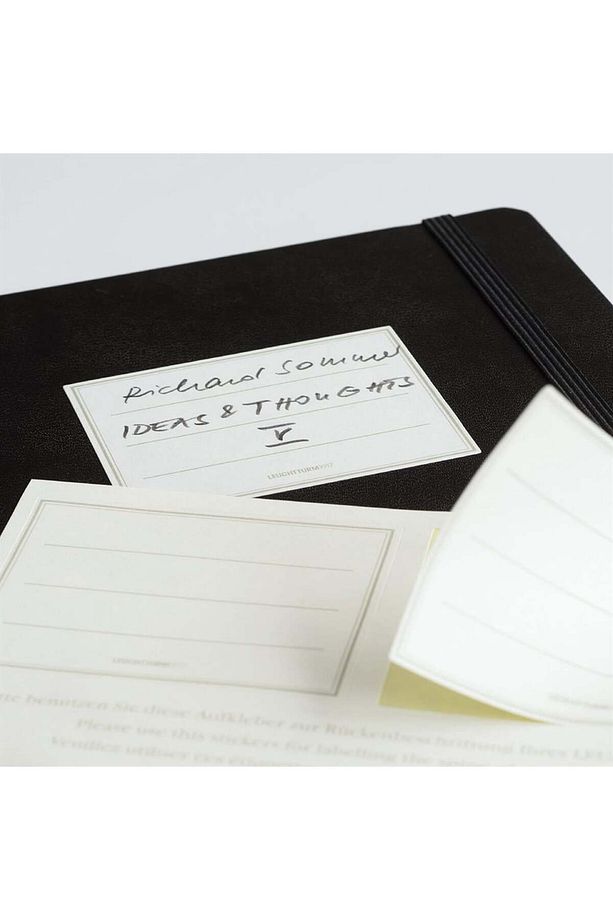 Richard Sommer
IDEAS & THOUGHTS
V
LEUCHTTURM1917
LEUCHTTURM1917
Bitte benutzen Sie diese Aufkleber zur Rückenbeschriftung Ihres
Please use this stickers for labelling the spine
Veuillez utiliser ces